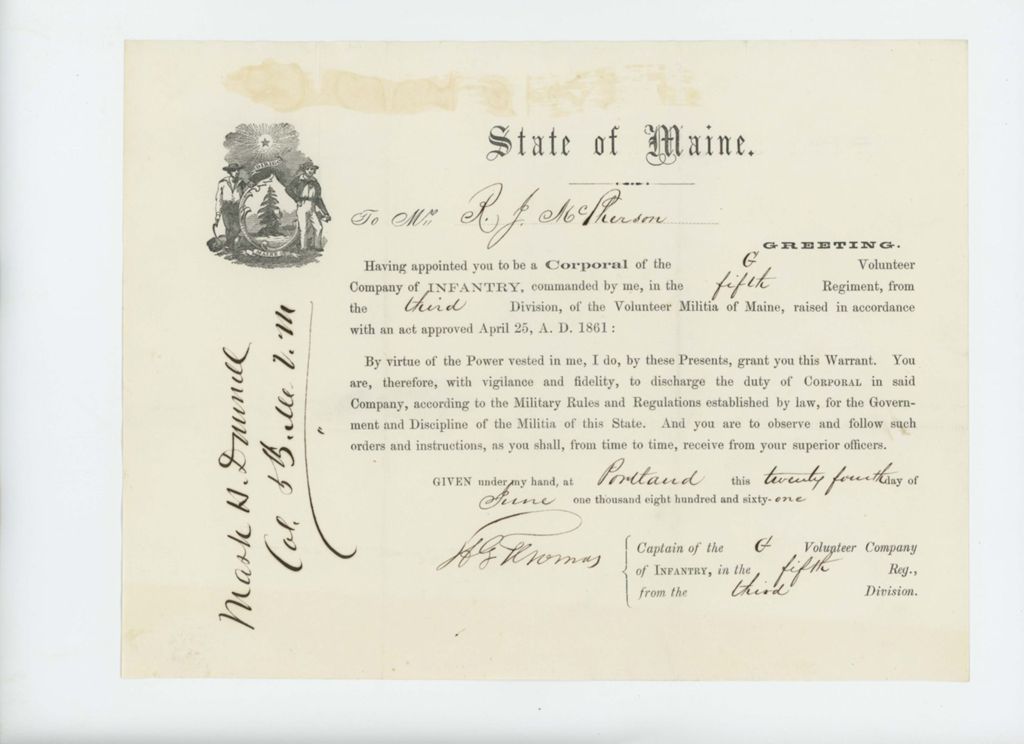 State of Maine.
DIRIGO
MAINE
To Mr. R. J. McPherson
GREETING.
Having appointed you to be a Corporal of the G Volunteer
Company of INFANTRY, commanded by me, in the fifth Regiment, from
the third Division, of the Volunteer Militia of Maine, raised in accordance
with an act approved April 25, A. D. 1861:
By virtue of the Power vested in me, I do, by these Presents, grant you this Warrant. You
are, therefore, with vigilance and fidelity, to discharge the duty of CORPORAL in said
Company, according to the Military Rules and Regulations established by law, for the Govern-
ment and Discipline of the Militia of this State. And you are to observe and follow such
orders and instructions, as you shall, from time to time, receive from your superior officers.
GIVEN under my hand, at Portland this twenty fourth day of
June one thousand eight hundred and sixty-one
H G Thomas
Captain of the G Volunteer Company
of INFANTRY, in the fifth Reg.,
from the third Division.
Mark H. Dunnell
Col. 5 V. M